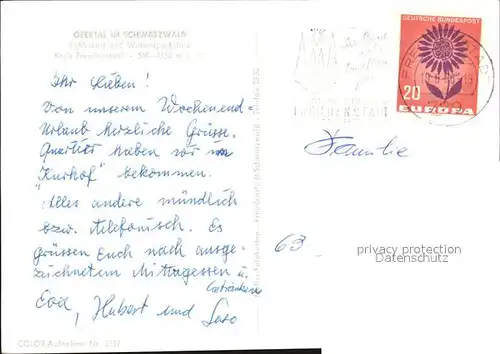 OBERTAL IM SCHWARZWALD
Luftkurort und Wintersportplatz
Kreis Freudenstadt
Ihr Lieben!
Von unserem Wochenend-
Urlaub herzliche Grüsse.
Quartier haben wir im
"Kurhof" bekommen.
Alles andere mündlich
bzw. telefonisch. Es
grüssen Euch nach ausge-
zeichnetem Mittagessen u.
Getränken
Eva, Hubert und
COLOR-Aufnahme Nr.
FREUDENSTADT
DEUTSCHE BUNDESPOST
20
EUROPA
Familie
63
privacy protection
Datenschutz